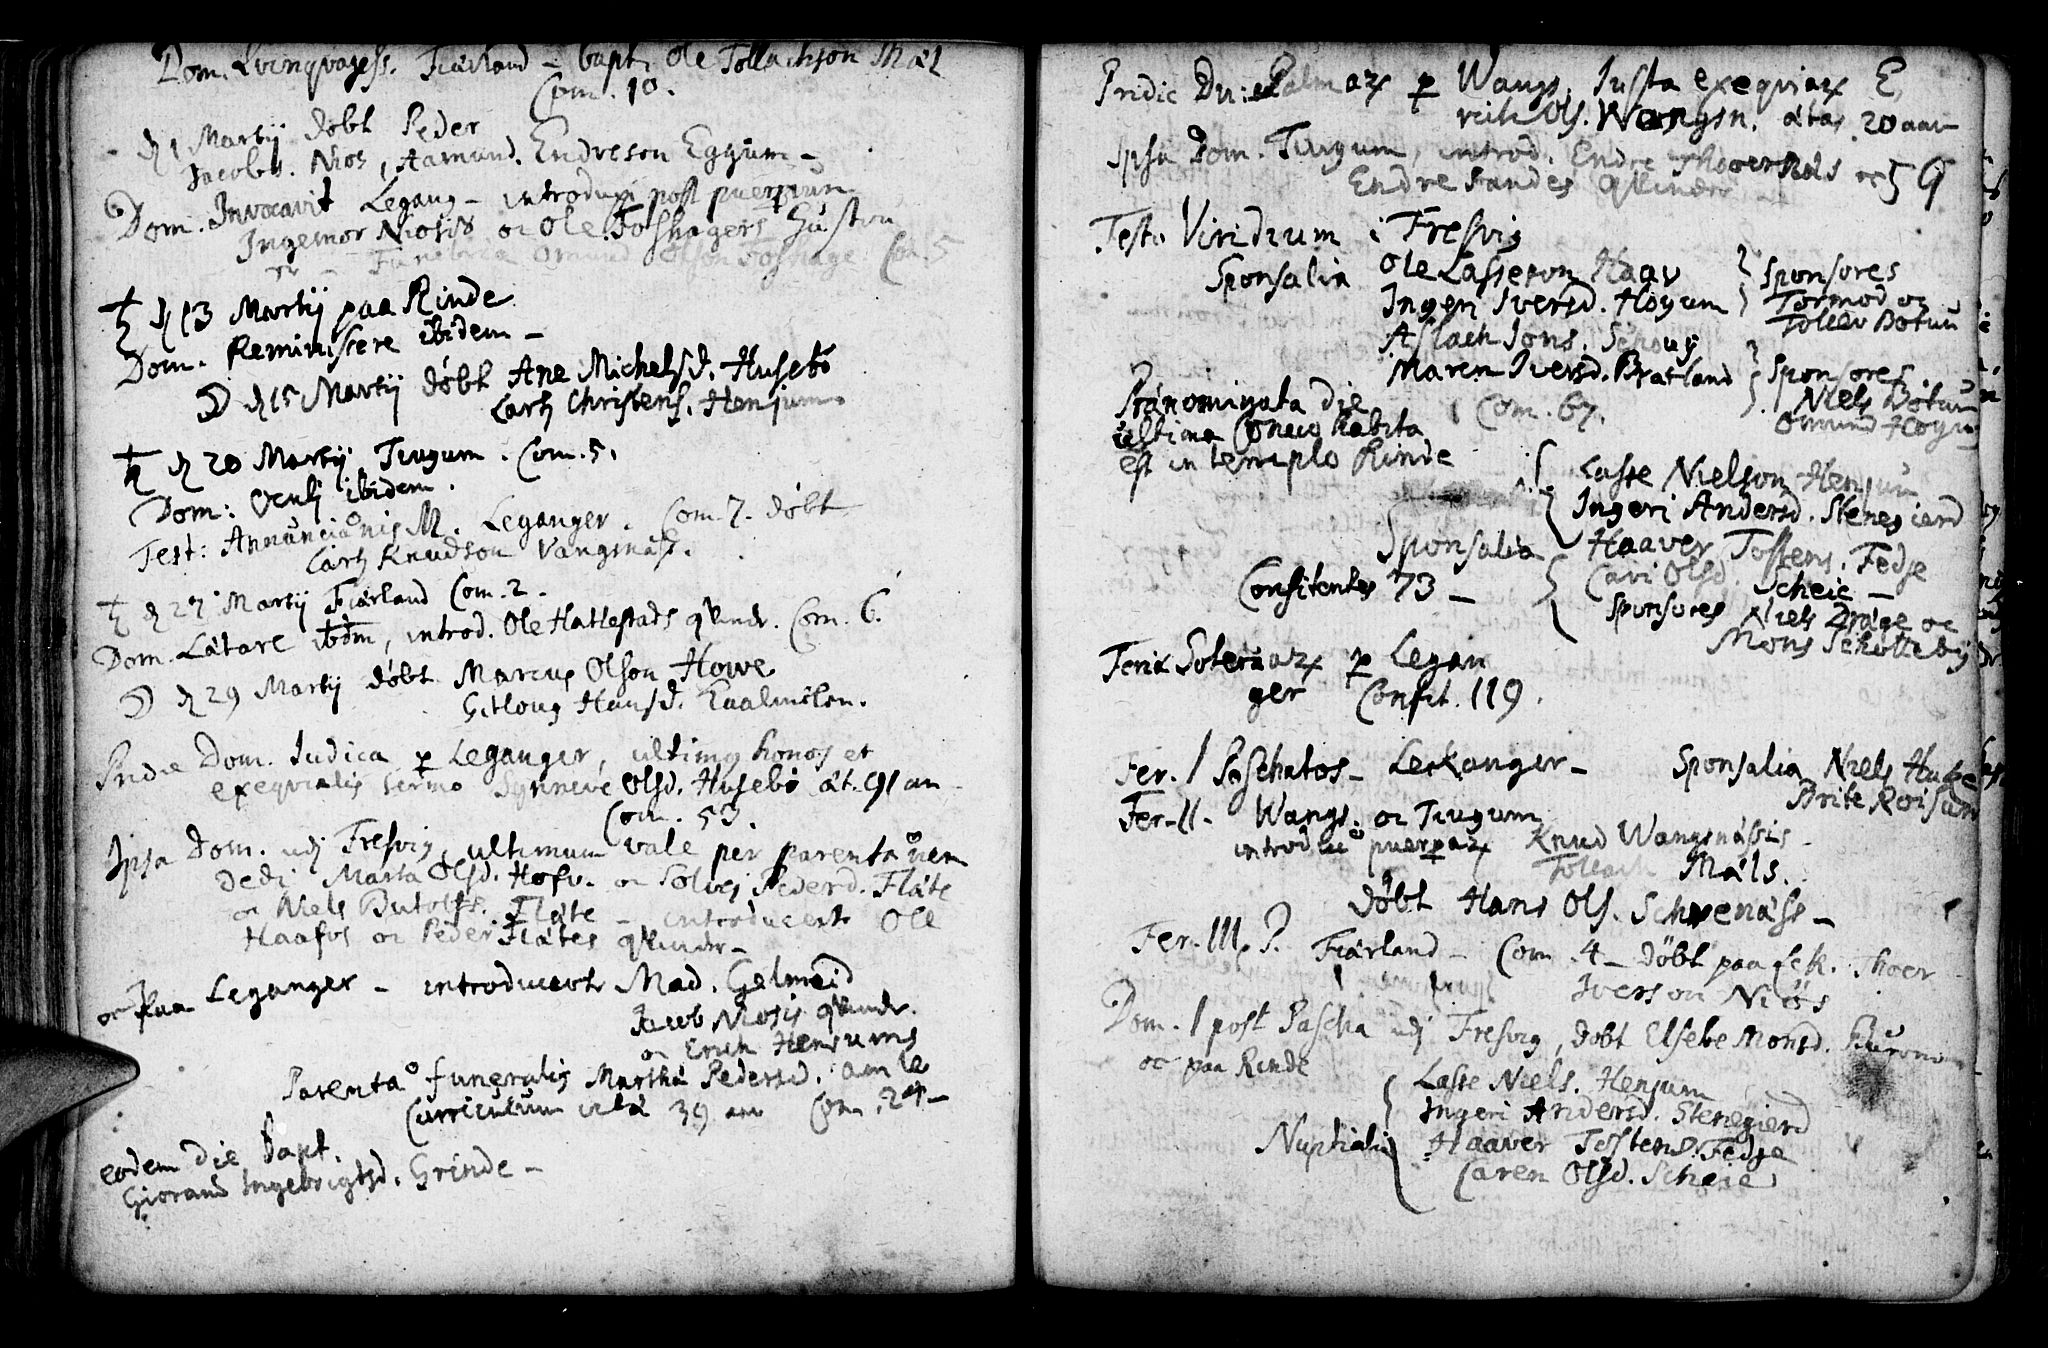 Dom. Qvinqvages. Fiærland – bapt. Ole Tollachson Mæl
Com. 10.
d. 1 Martij døbt Peder
Jacobs. Niøs, Aamund. Endreson Eggum –
Dom. Invocavit Legang – introduxi post puerpium
Ingemor Niøsis oc Ole Foshagers Hustru
Funebria Omund Olson Foshage Com. 5
♄ d 13 Martij paa Rinde
Dom. Reminiscere ibidem –
☽ d 15 Martij døbt Ane Michelsd. Husebø
Lars Christens. Henjum.
♄ d 20 Martij Tiugum. Com. 5.
Dom: Oculj ibidem.
Fest: Annunciaonis M. Leganger. Com. 7. døbt
Lars Knudson Vangsnæs.
♄ d 27 Martij Fiærland Com. 2.
Dom. Lætare ibdm, introd. Ole Hatlestads qvindr. Com. 6.
☽ d 29 Martij døbt Marcus Olson Howe
Gitloug Hansd.
Pridie Dom. Judica p Leganger, ultimus honos et
exeqvialis sermo Synneve Olsd. Husebø æt. 91 an
Com. 53.
Ipsa Dom. udj Fresvig, ultimum vale per parentaonem
dedi Marta Olsd. Hofv. oc Solvej Pederd. Flæte
oc Niels Butolfs. Flæte – introducert Ole
Haafvs oc Peder Flætes qvinder –
oc paa Leganger – introducert Mad. Gelmeid
Jacob Niøsis qvindr.
oc Erich Henjums
Parentao funeralis Martha Pedersd. Amle
Curriculum vitæ 39 an Com. 24 –
eodem die bapt.
Giorand Ingebrigtsd. Grinde –
Pridie Dn: Palmar p Wangs. Justa exeqviar E,
rich Ols. Wangsn. ætas 20 aar
Ipsa Dom. Tiugum, introd. Endre oc 59
Endre Fandes Qvinder
Festo Viridium i Fresvig
Sponsalia Ole Lasseson Haav Sponsores
Ingeri Iversd. Høyum Tormod oc
Tollev Bøtun
Aslach Jons. Schouj
Maren Iversd. Bratland Sponsores
Niels Bøtun
Omund Høyum
Prænominata die Com. 67.
ultima Concio habita
est in templo Rinde
Lasse Nielson Henjum
Ingeri Andersd. Stenegierd
Sponsalia Haaver Tostens. Fedje
Cari Olsd. Scheie –
Confitentes 73 – Sponsores Niels Dræge oc
Mons Schottebÿ
Feriæ Soteriar p Legan
ger Confit. 119.
Fer. I Paschatos – Leckanger – Sponsalia Niels Husebø
Brite Røisum
Fer. II. Wangs. oc Tiugum
introduc puerpar Knud Wangsnæsis
Tollach Mæls.
døbt Hans Ols. Schrenæss –
Fer. III. P. Fiærland – Com. 4 – døbt paa Leck. Thoer
Iverson Niøs
Dom. I post Pascha udj Fresvig, døbt Elsebe Monsd.
oc paa Rinde
Lasse Niels. Henjum
Ingeri Andersd. Stenegierd
Nuptialia Haaver Tostens. Fedje
Caren Olsd. Scheie